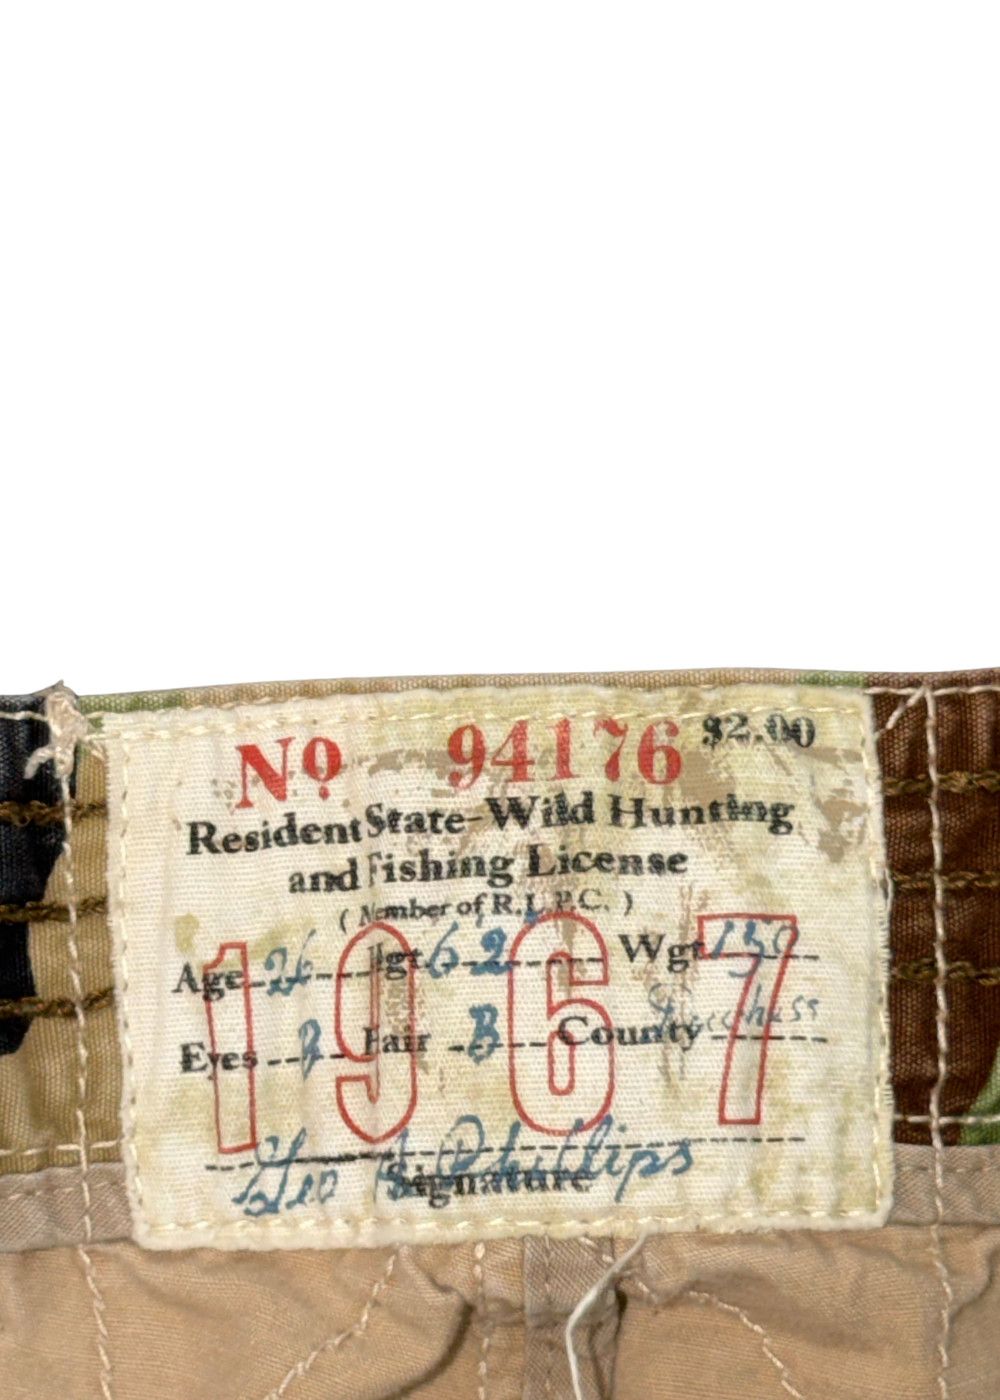 No 94176 $2.00
Resident State-Wild Hunting
and Fishing License
(Member of R.L.P.C.)
1967
Age 26 Hgt 62 Wgt 150
Eyes B Hair B County
Geo Phillips
Signature